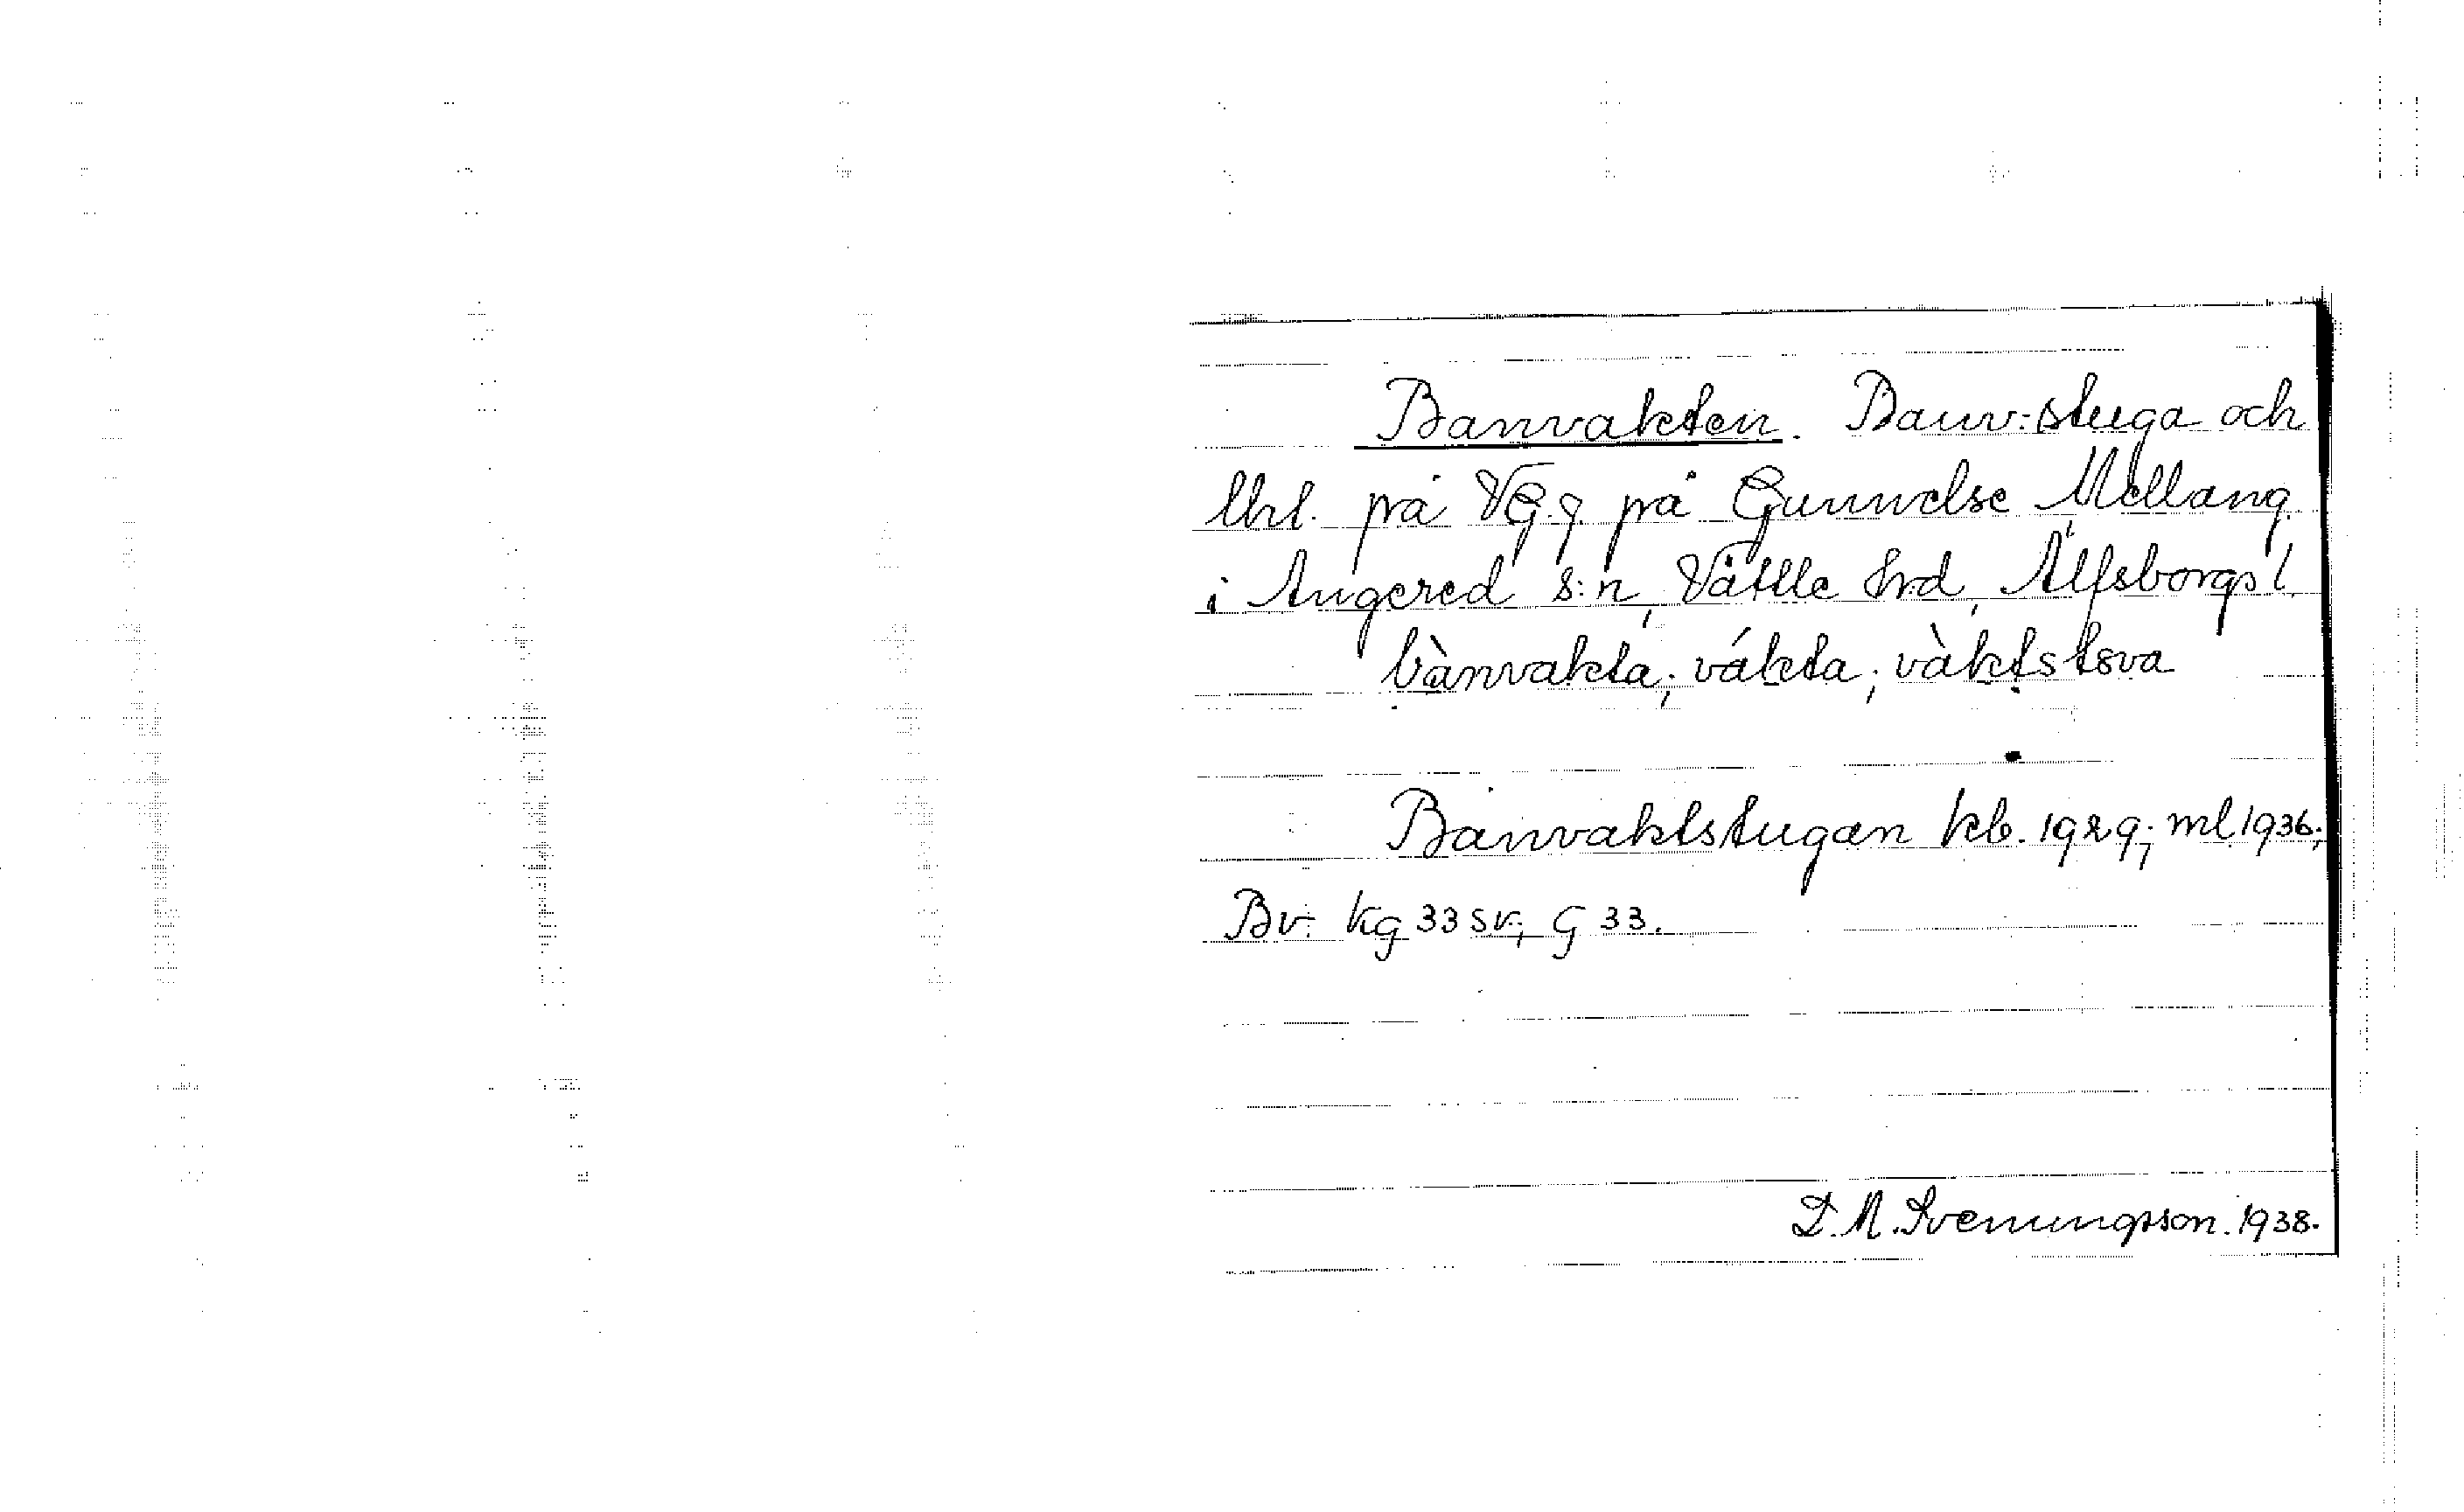 Banvakten. Banv:stuga och
lht. på VG.g på Gunnelse Mellang.
i Angered s:n, Vättle hrd, Älfsborgs l.
bànvakta; vákta; vàktstova
Banvaktstugan kb. 1929; ml 1936;
Bv: kg 33 sv; G 33.
D. A. Svenungsson. 1938.